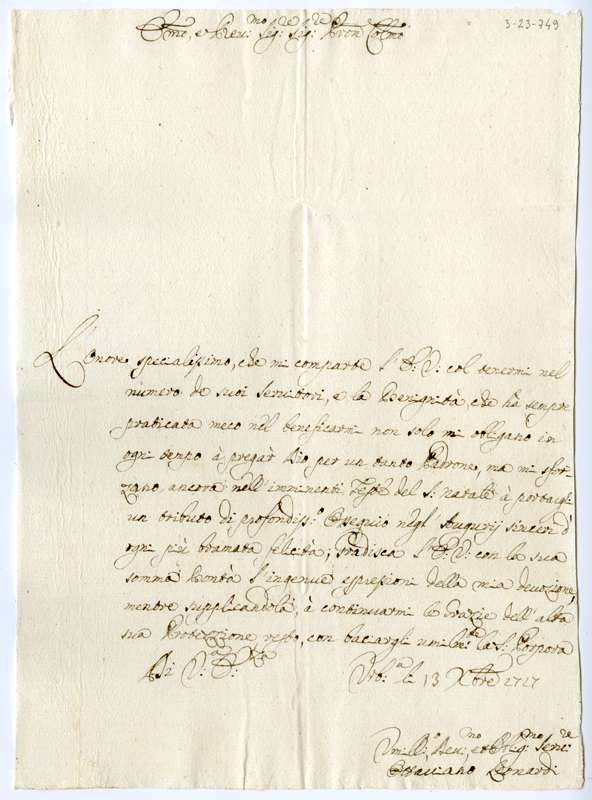 3-23-749
Emo, e Rev: mo Sig: re Sig: re Pron Colmo
L'onore specialissimo, che mi comparte l'E: V: col tenermi nel
numero de suoi servitori, e la Benignità, che hà sempre
praticata meco nèl beneficarmi non solo mi obligano in
ogni tempo à pregar Dio per un tanto Padrone, ma mi sfor-
zano ancora nell'imminenti Feste del S: natale à portargli
un tributo di profondiss:o Ossequio negl'Augurij sinceri d'
ogni più bramata felicità; Gradisca l'E: V: con la sua
somma Bontà l'ingenue espressioni della mia devozione,
mentre supplicandola à continuarmi le Grazie dell'alta
sua Protezzione resto, con baciargli umilm:te la S: Porpora
Di V: E:
Urb:o li 13 Xbre 1727
Umill:o Dev: mo et Oblig: mo Serv: re
Ottaviano Leonardi